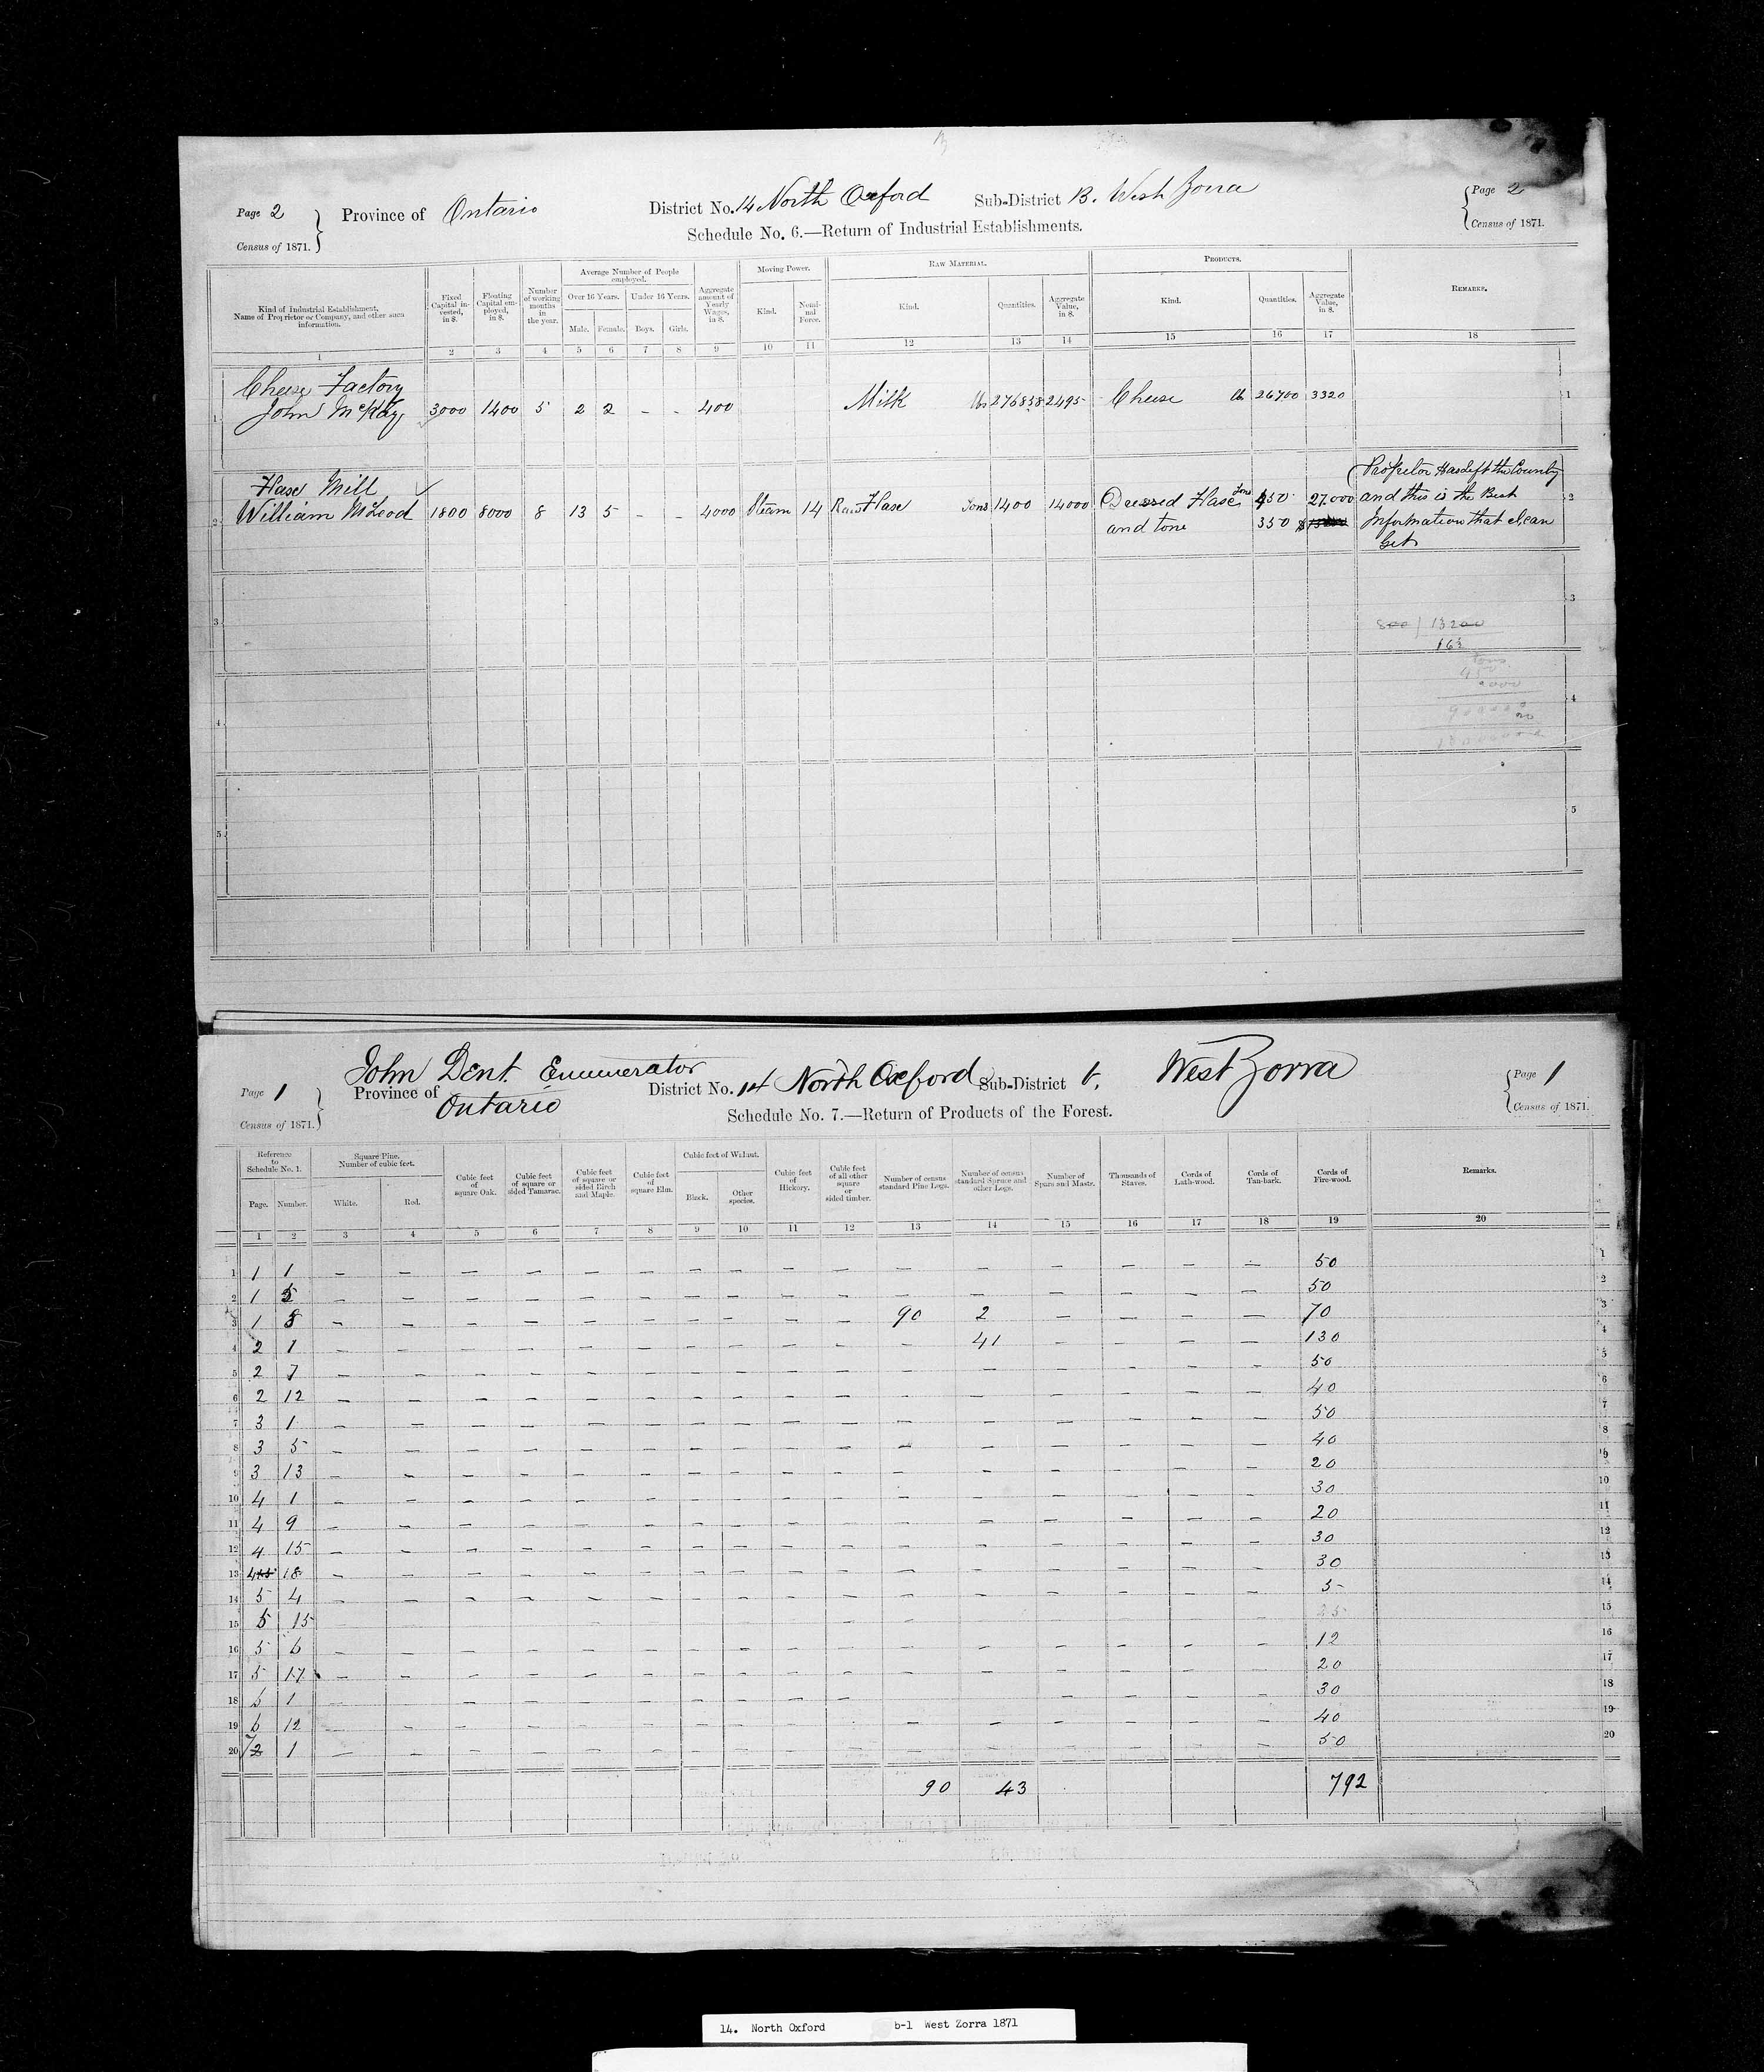 Page 2 Province of Ontario District No. 14 North Oxford Sub-District B. West Zorra Page 2
Census of 1871. Schedule No. 6.—Return of Industrial Establishments. Census of 1871.
Kind of Industrial Establishment, Name of Proprietor or Company, and other such information. Fixed Capital invested, in $. Floating Capital employed, in $. Number of working months in the year. Average Number of People employed. Over 16 Years. Under 16 Years. Male. Female. Boys. Girls. Aggregate amount of Yearly Wages, in $. Moving Power. Kind. Nominal Force. Raw Material. Kind. Quantities. Aggregate Value, in $. Products. Kind. Quantities. Aggregate Value, in $. Remarks.
1 2 3 4 5 6 7 8 9 10 11 12 13 14 15 16 17 18
Cheese Factory
1 John McKay 3000 1400 5 2 2 - - 400 Milk lbs 276858 2495 Cheese lb 26700 3320 1
Propretor Has Left the County
Flax Mill Tons
2 William McLeod 1800 8000 8 13 5 - - 4000 Steam 14 Raw Flax Tons 1400 14000 Dressed Flax 450 27.000 and this is the Best 2
and tone 350 Information that I can
Get
3 3
800 | 13200
163
tons
4 4
5 5
John Dent Enumerator
Page 1 Province of Ontario District No. 14 North Oxford Sub-District b, West Zorra Page 1
Census of 1871. Schedule No. 7.—Return of Products of the Forest. Census of 1871.
Reference to Schedule No. 1. Page. Number. Square Pine. Number of cubic feet. White. Red. Cubic feet of square Oak. Cubic feet of square or sided Tamarac. Cubic feet of square or sided Birch and Maple. Cubic feet of square Elm. Cubic feet of Walnut. Black. Other species. Cubic feet of Hickory. Cubic feet of all other square or sided timber. Number of census standard Pine Logs. Number of census standard Spruce and other Logs. Number of Spars and Masts. Thousands of Staves. Cords of Lath-wood. Cords of Tan-bark. Cords of Fire-wood. Remarks.
1 2 3 4 5 6 7 8 9 10 11 12 13 14 15 16 17 18 19 20
1 1 1 — — — — — — — — — — — — — — — — 50 1
2 1 5 — — — — — — — — — — — — — — — — 50 2
3 1 8 — — — — — — — — — — 90 2 — — — — 70 3
4 2 1 — — — — — — — — — — — 41 — — — — 130 4
5 2 7 — — — — — — — — — — — — — — — — 50 5
6 2 12 — — — — — — — — — — — — — — — — 40 6
7 3 1 — — — — — — — — — — — — — — — — 50 7
8 3 5 — — — — — — — — — — — — — — — — 40 8
9 3 13 — — — — — — — — — — — — — — — — 20 9
10 4 1 — — — — — — — — — — — — — — — — 30 10
11 4 9 — — — — — — — — — — — — — — — — 20 11
12 4 15 — — — — — — — — — — — — — — — — 30 12
13 4 18 — — — — — — — — — — — — — — — — 30 13
14 5 4 — — — — — — — — — — — — — — — — 5 14
15 5 15 — — — — — — — — — — — — — — — — 25 15
16 5 6 — — — — — — — — — — — — — — — — 12 16
17 5 17 — — — — — — — — — — — — — — — — 20 17
18 6 1 — — — — — — — — — — — — — — 30 18
19 6 12 — — — — — — — — — — — — — — — — 40 19
20 7 1 — — — — — — — — — — — — — — — — 50 20
90 43 792
14. North Oxford b-1 West Zorra 1871